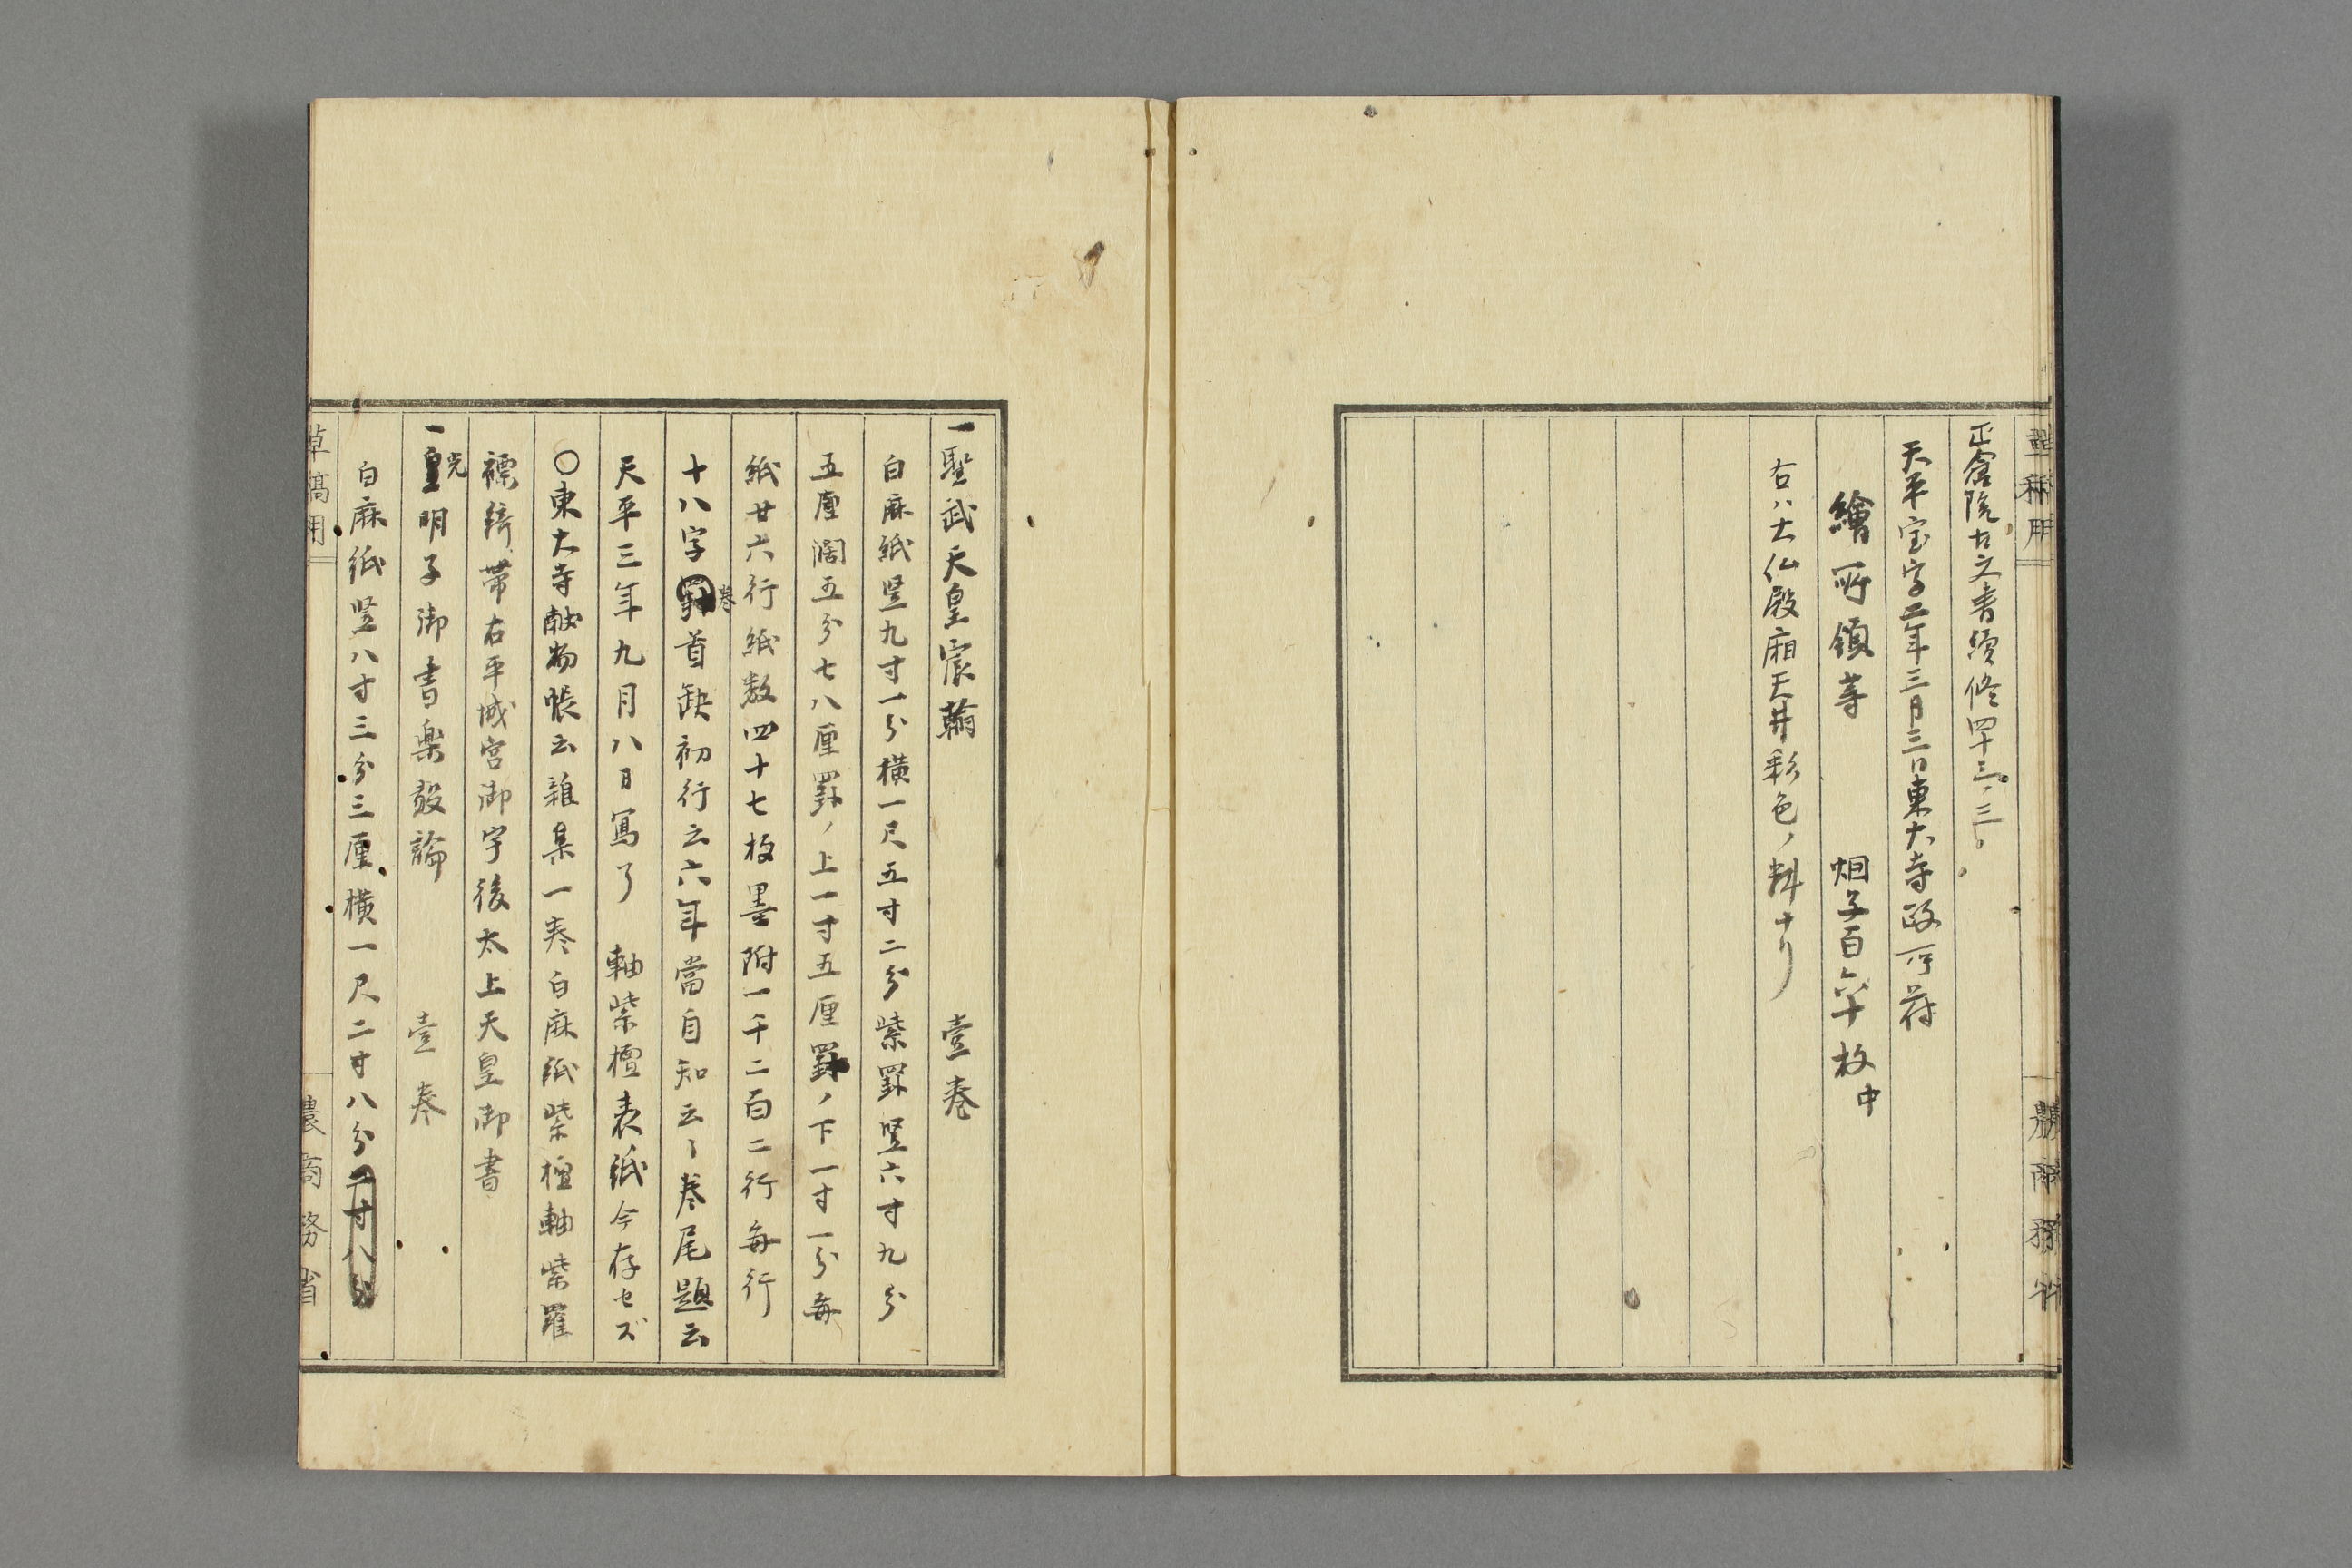 正倉院古文書續修四十三ノ三
天平宝字二年三月三日東大寺政所符
繪所領等　烟子百六十枚中
右ハ大仏殿廂天井彩色ノ料ナリ
一聖武天皇宸翰　壹卷
白麻紙竪九寸一分横一尺五寸二分紫罫竪六寸九分
五厘濶五分七八厘罫ノ上一寸五厘罫ノ下一寸一分毎
紙廿六行紙数四十七枚墨附一千二百二行毎行
十八字卷首缺初行云六年當自知云々卷尾題云
天平三年九月八日寫了　軸紫檀表紙今存セズ
〇東大寺献物帳云雑集一卷白麻紙紫檀軸紫羅
褾綺帯右平城宮御宇後太上天皇御書
一光皇明子御書樂毅論　壹卷
白麻紙竪八寸三分三厘横一尺二寸八分二寸八分
草稿用
農商務省